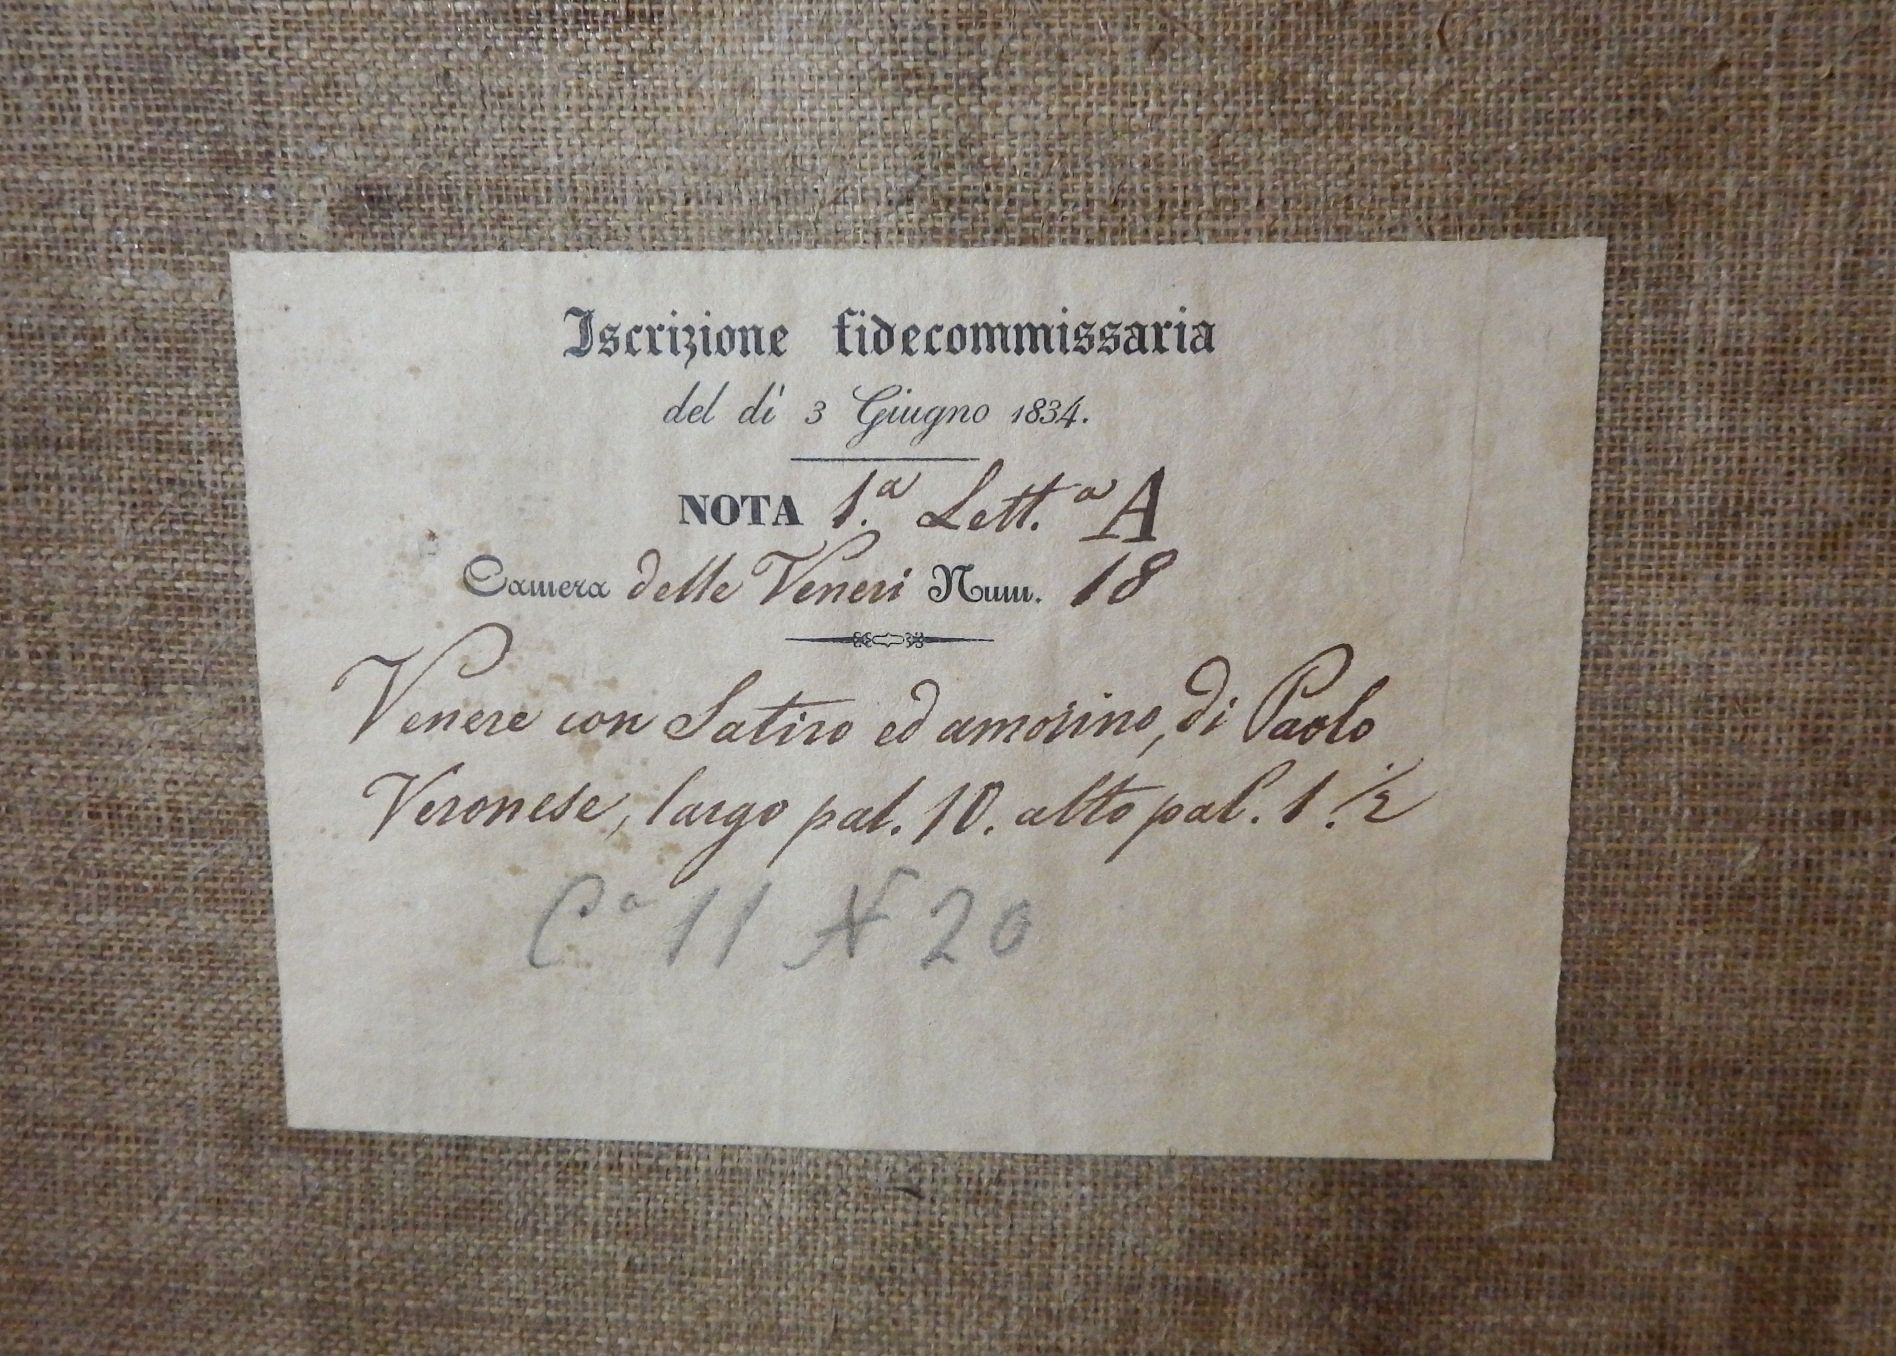 Iscrizione fidecommissaria
del dì 3 Giugno 1834.
NOTA 1.ª Lett.ª A
Camera delle Veneri Num. 18
Venere con Satiro ed amorino, di Paolo
Veronese, largo pal. 10. alto pal. 1.½
Cª 11 N 20